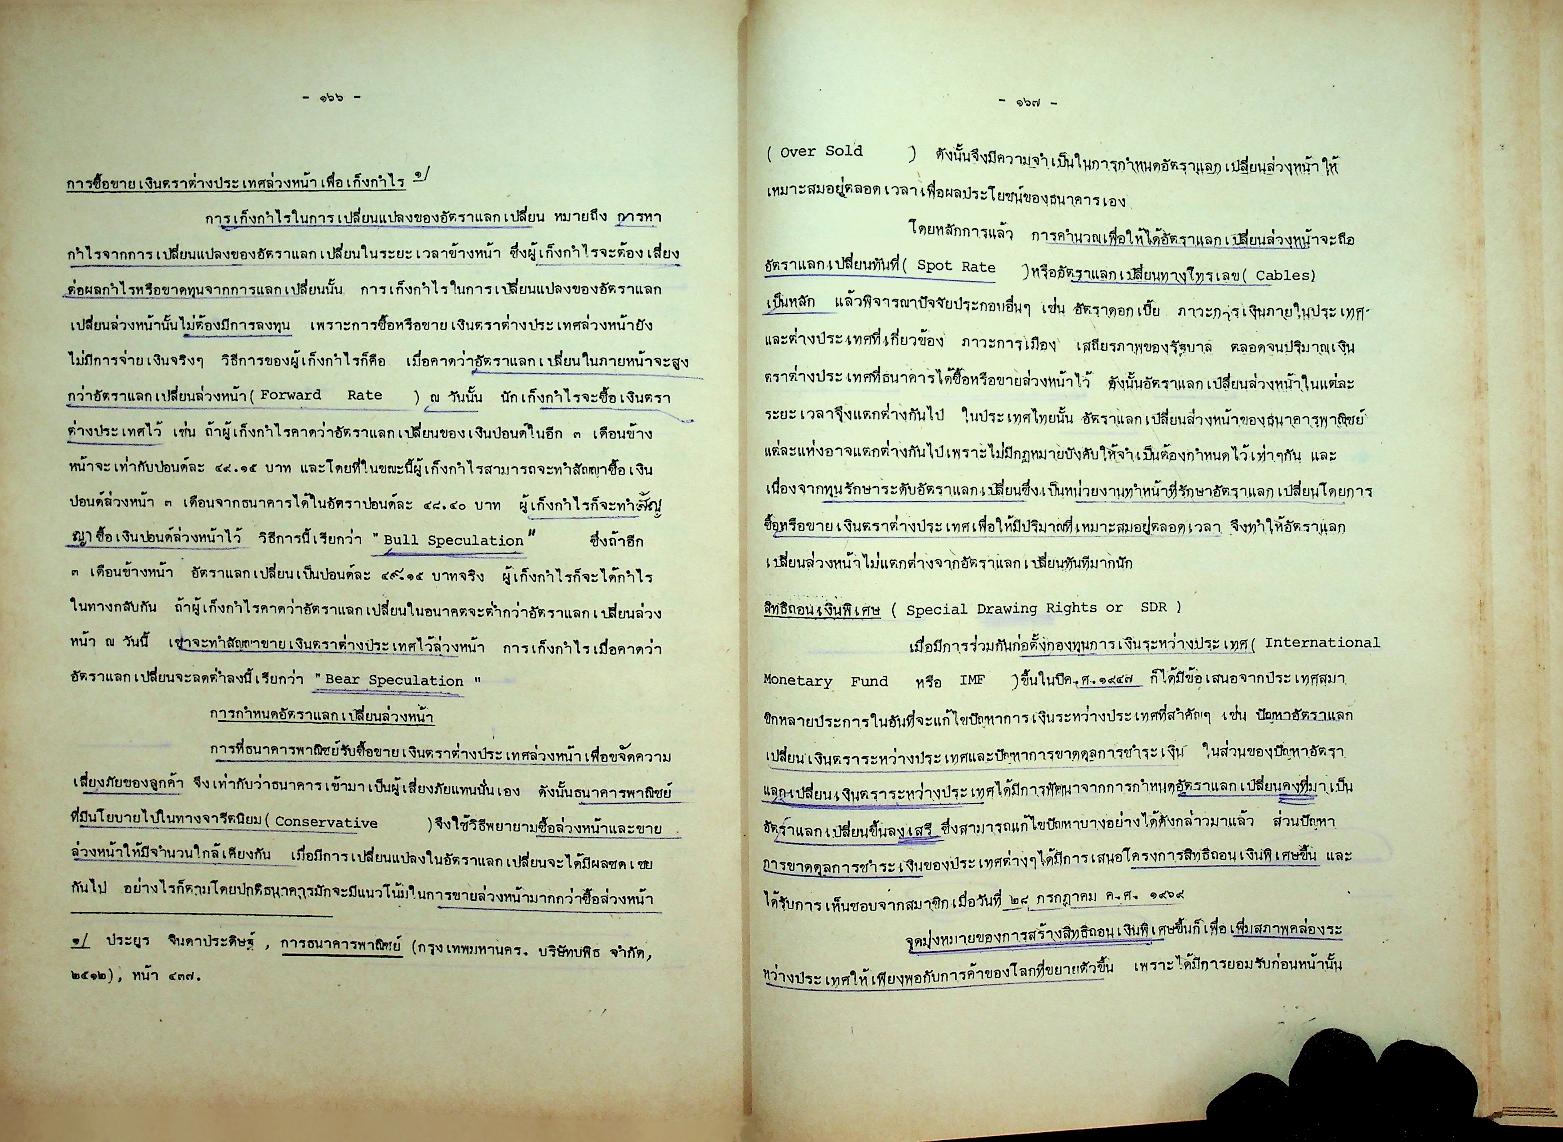 - ๑๖๖ -
การซื้อขายเงินตราต่างประเทศล่วงหน้าเพื่อเก็งกำไร ๑/
การเก็งกำไรในการเปลี่ยนแปลงของอัตราแลกเปลี่ยน หมายถึง การหา
กำไรจากการเปลี่ยนแปลงของอัตราแลกเปลี่ยนในระยะเวลาข้างหน้า ซึ่งผู้เก็งกำไรจะต้องเสี่ยง
ต่อผลกำไรหรือขาดทุนจากการแลกเปลี่ยนนั้น การเก็งกำไรในการเปลี่ยนแปลงของอัตราแลก
เปลี่ยนล่วงหน้านั้นไม่ต้องมีการลงทุน เพราะการซื้อหรือขายเงินตราต่างประเทศล่วงหน้ายัง
ไม่มีการจ่ายเงินจริงๆ วิธีการของผู้เก็งกำไรก็คือ เมื่อคาดว่าอัตราแลกเปลี่ยนในภายหน้าจะสูง
กว่าอัตราแลกเปลี่ยนล่วงหน้า( Forward Rate ) ณ วันนั้น นักเก็งกำไรจะซื้อเงินตรา
ต่างประเทศไว้ เช่น ถ้าผู้เก็งกำไรคาดว่าอัตราแลกเปลี่ยนของเงินปอนด์ในอีก ๓ เดือนข้าง
หน้าจะเท่ากับปอนด์ละ ๔๙.๑๕ บาท และโดยที่ในขณะนี้ผู้เก็งกำไรสามารถจะทำสัญญาซื้อเงิน
ปอนด์ล่วงหน้า ๓ เดือนจากธนาคารได้ในอัตราปอนด์ละ ๔๘.๔๐ บาท ผู้เก็งกำไรก็จะทำสัญ
ญาซื้อเงินปอนด์ล่วงหน้าไว้ วิธีการนี้เรียกว่า "Bull Speculation" ซึ่งถ้าอีก
๓ เดือนข้างหน้า อัตราแลกเปลี่ยนเป็นปอนด์ละ ๔๙.๑๕ บาทจริง ผู้เก็งกำไรก็จะได้กำไร
ในทางกลับกัน ถ้าผู้เก็งกำไรคาดว่าอัตราแลกเปลี่ยนในอนาคตจะต่ำกว่าอัตราแลกเปลี่ยนล่วง
หน้า ณ วันนี้ เขาจะทำสัญญาขายเงินตราต่างประเทศไว้ล่วงหน้า การเก็งกำไรเมื่อคาดว่า
อัตราแลกเปลี่ยนจะลดต่ำลงนี้เรียกว่า "Bear Speculation "
การกำหนดอัตราแลกเปลี่ยนล่วงหน้า
การที่ธนาคารพาณิชย์รับซื้อขายเงินตราต่างประเทศล่วงหน้าเพื่อขจัดความ
เสี่ยงภัยของลูกค้า จึงเท่ากับว่าธนาคารเข้ามาเป็นผู้เสี่ยงภัยแทนนั่นเอง ดังนั้นธนาคารพาณิชย์
ที่มีนโยบายไปในทางจารีตนิยม( Conservative )จึงใช้วิธีพยายามซื้อล่วงหน้าและขาย
ล่วงหน้าให้มีจำนวนใกล้เคียงกัน เมื่อมีการเปลี่ยนแปลงในอัตราแลกเปลี่ยนจะได้มีผลชดเชย
กันไป อย่างไรก็ตามโดยปกติธนาคารมักจะมีแนวโน้มในการขายล่วงหน้ามากกว่าซื้อล่วงหน้า
๑/ ประยูร จินดาประดิษฐ์, การธนาคารพาณิชย์ (กรุงเทพมหานคร. บริษัทบพิธ จำกัด,
๒๕๑๒), หน้า ๔๓๗.
- ๑๖๗ -
( Over Sold ) ดังนั้นจึงมีความจำเป็นในการกำหนดอัตราแลกเปลี่ยนล่วงหน้าให้
เหมาะสมอยู่ตลอดเวลาเพื่อผลประโยชน์ของธนาคารเอง
โดยหลักการแล้ว การคำนวณเพื่อให้ได้อัตราแลกเปลี่ยนล่วงหน้าจะถือ
อัตราแลกเปลี่ยนทันที( Spot Rate )หรืออัตราแลกเปลี่ยนทางโทรเลข( Cables)
เป็นหลัก แล้วพิจารณาปัจจัยประกอบอื่นๆ เช่น อัตราดอกเบี้ย ภาวะการเงินภายในประเทศ
และต่างประเทศที่เกี่ยวข้อง ภาวะการเมือง เสถียรภาพของรัฐบาล ตลอดจนปริมาณเงิน
ตราต่างประเทศที่ธนาคารได้ซื้อหรือขายล่วงหน้าไว้ ดังนั้นอัตราแลกเปลี่ยนล่วงหน้าในแต่ละ
ระยะเวลาจึงแตกต่างกันไป ในประเทศไทยนั้น อัตราแลกเปลี่ยนล่วงหน้าของธนาคารพาณิชย์
แต่ละแห่งอาจแตกต่างกันไปเพราะไม่มีกฎหมายบังคับให้จำเป็นต้องกำหนดไว้เท่าๆกัน และ
เนื่องจากทุนรักษาระดับอัตราแลกเปลี่ยนซึ่งเป็นหน่วยงานทำหน้าที่รักษาอัตราแลกเปลี่ยนโดยการ
ซื้อหรือขายเงินตราต่างประเทศเพื่อให้มีปริมาณที่เหมาะสมอยู่ตลอดเวลา จึงทำให้อัตราแลก
เปลี่ยนล่วงหน้าไม่แตกต่างจากอัตราแลกเปลี่ยนทันทีมากนัก
สิทธิถอนเงินพิเศษ ( Special Drawing Rights or SDR )
เมื่อมีการร่วมกันก่อตั้งกองทุนการเงินระหว่างประเทศ( International
Monetary Fund หรือ IMF )ขึ้นในปีค.ศ.๑๙๔๗ ก็ได้มีข้อเสนอจากประเทศสมา
ชิกหลายประการในอันที่จะแก้ไขปัญหาการเงินระหว่างประเทศที่สำคัญๆ เช่น ปัญหาอัตราแลก
เปลี่ยนเงินตราระหว่างประเทศและปัญหาการขาดดุลการชำระเงิน ในส่วนของปัญหาอัตรา
แลกเปลี่ยนเงินตราระหว่างประเทศได้มีการพัฒนาจากการกำหนดอัตราแลกเปลี่ยนคงที่มาเป็น
อัตราแลกเปลี่ยนขึ้นลงเสรี ซึ่งสามารถแก้ไขปัญหาบางอย่างได้ดังกล่าวมาแล้ว ส่วนปัญหา
การขาดดุลการชำระเงินของประเทศต่างๆได้มีการเสนอโครงการสิทธิถอนเงินพิเศษขึ้น และ
ได้รับการเห็นชอบจากสมาชิกเมื่อวันที่ ๒๘ กรกฎาคม ค.ศ. ๑๙๖๙
จุดมุ่งหมายของการสร้างสิทธิถอนเงินพิเศษขึ้นก็เพื่อเพิ่มสภาพคล่องระ
หว่างประเทศให้เพียงพอกับการค้าของโลกที่ขยายตัวขึ้น เพราะได้มีการยอมรับก่อนหน้านั้น